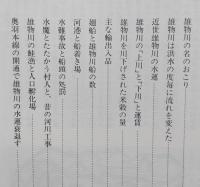 雄物川の名のおこり
雄物川は洪水の度毎に流れを変えた…
近世雄物川の水運
雄物川の「上川」と「下川」と運賃
雄物川を川下げされた米穀の量
主な輸出入品
廻船と雄物川船の数
河港と船着き場
水難事故と船頭の処罰
水魔とたたかう村人と、昔の河川工事
雄物川の鮭漁と人口孵化場
奥羽本線の開通で雄物川の水運衰退す